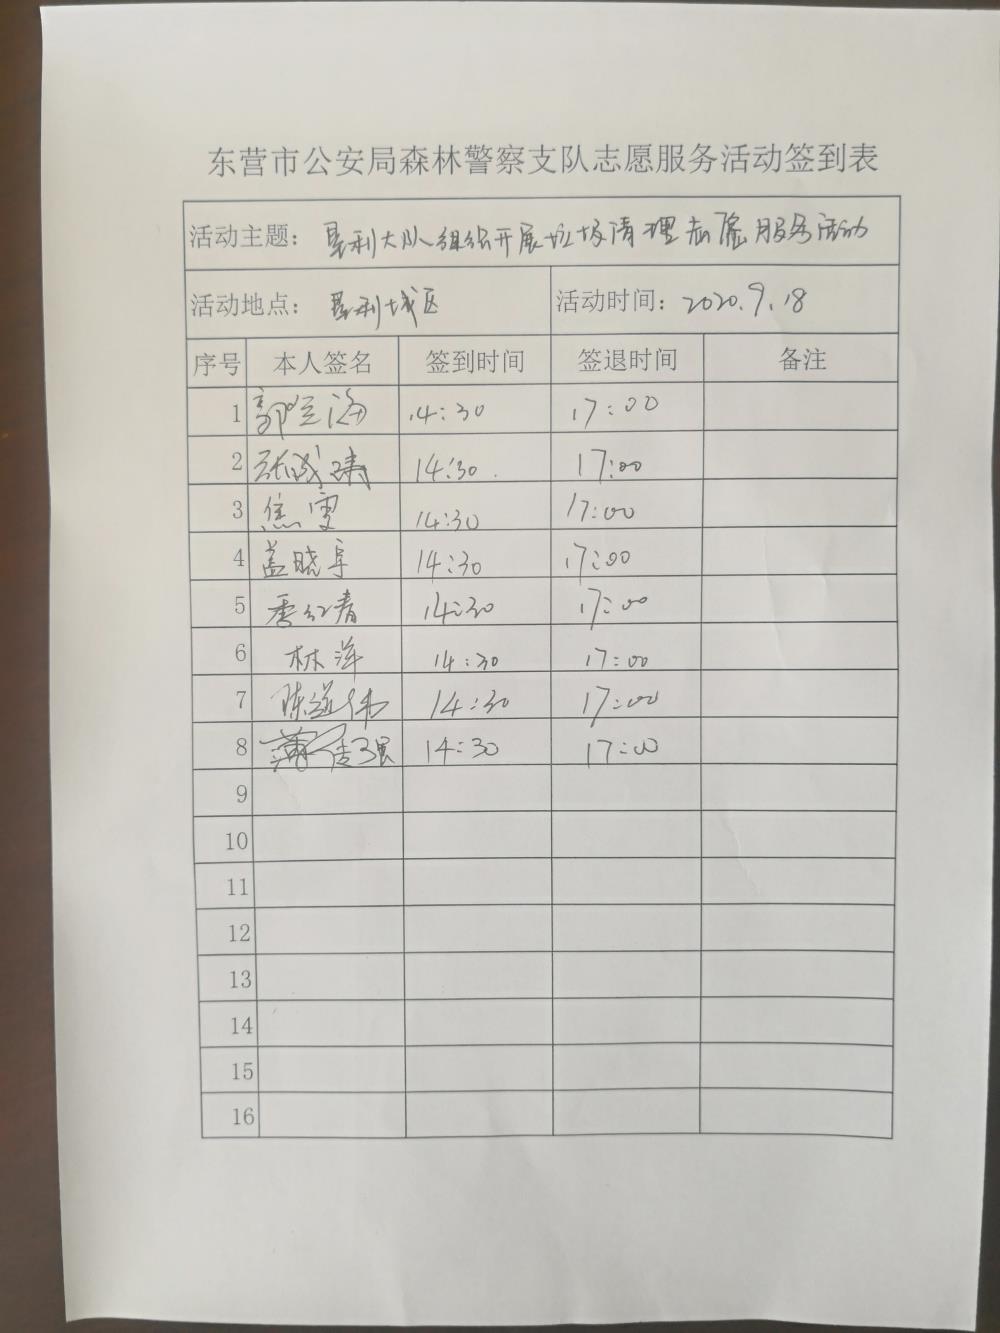 东营市公安局森林警察支队志愿服务活动签到表
活动主题： 垦利大队组织开展垃圾清理志愿服务活动
活动地点： 垦利城区 活动时间：2020.9.18
序号 本人签名 签到时间 签退时间 备注
1 郭兰海 14:30 17:00
2 张成涛 14:30 17:00
3 焦雪 14:30 17:00
4 盖晓 14:30 17:00
5 李红青 14:30 17:00
6 林洋 14:30 17:00
7 陈道伟 14:30 17:00
8 14:30 17:00
9
10
11
12
13
14
15
16